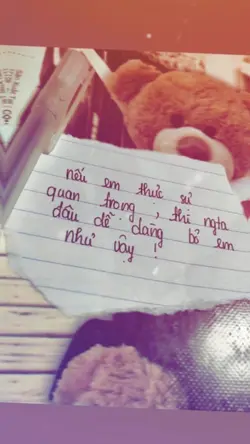 nếu em thực sự
quan trọng , thì ngta
đâu dễ dàng bỏ em
như vậy !